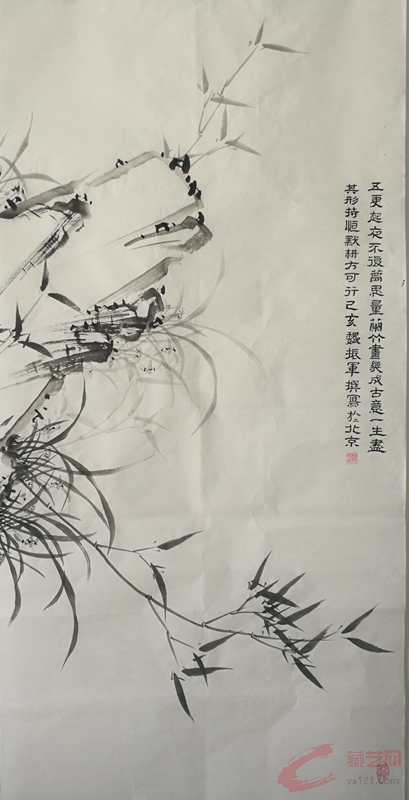 五更起夜不復萬思量蘭竹畫幾成古意一生盡
其形持恒默耕方可行己亥魏振軍撰寫於北京
藏艺网
ys121.com